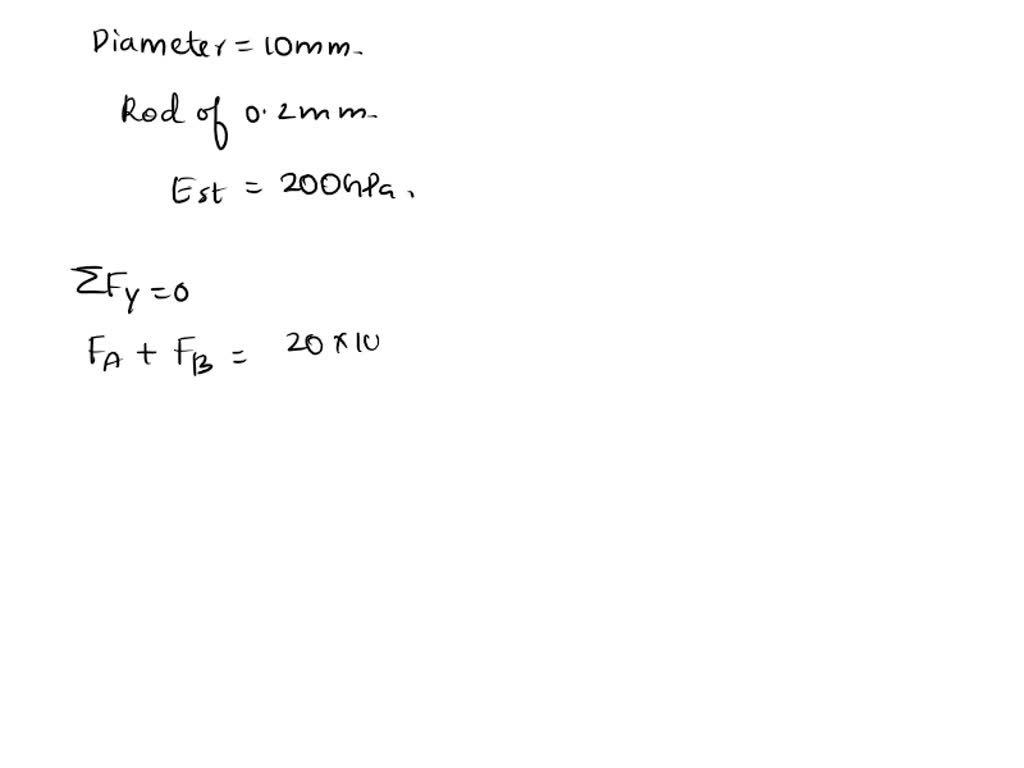 Diameter = 10mm.
Rod of 0.2mm.
Est = 200GPa.
ΣFy = 0
FA + FB = 20 × 10